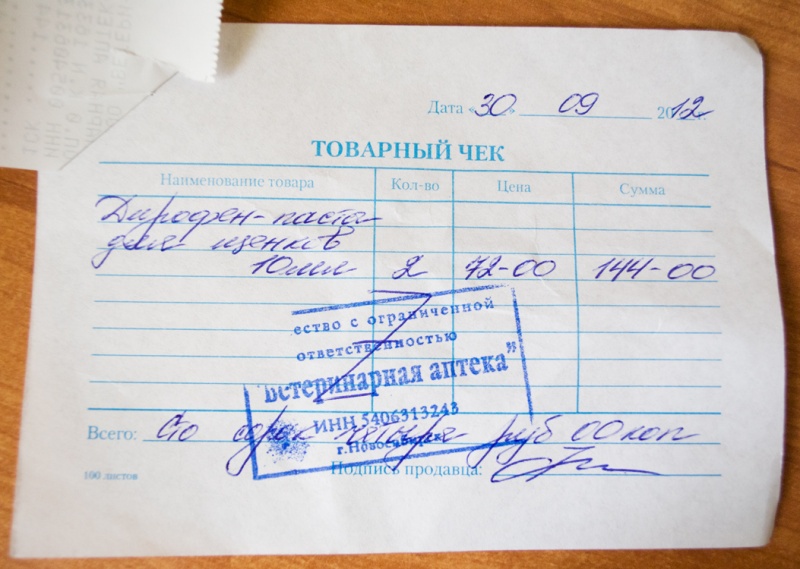 Дата «30» 09 2012 г.
ТОВАРНЫЙ ЧЕК
Наименование товара Кол-во Цена Сумма
Дирофен-паста
для щенков
10мл 2 72-00 144-00
ество с ограниченной
ответственностью
Ветеринарная аптека"
ИНН 5406313243
г.Новосибирск
Всего: Сто сорок четыре руб 00 коп
Подпись продавца:
100 листов